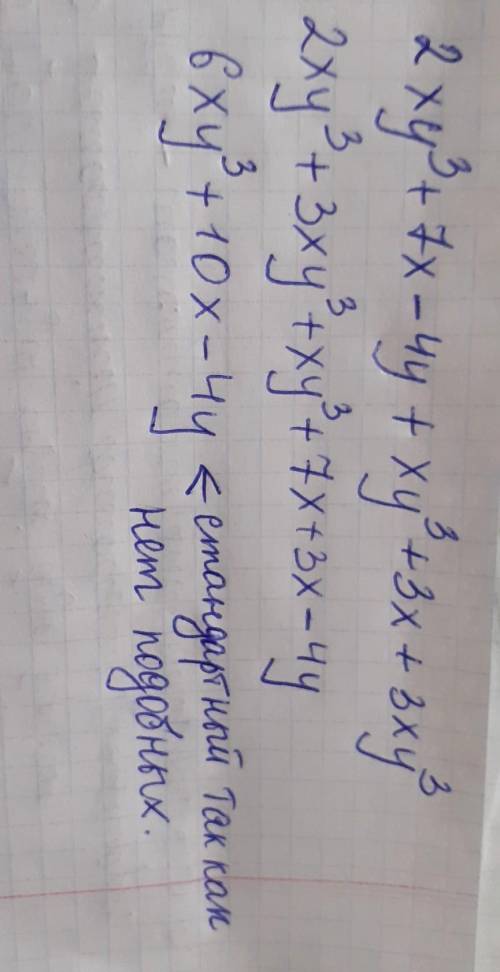 2xy³ + 7x - 4y + xy³ + 3x + 3xy³
2xy³ + 3xy³ + xy³ + 7x + 3x - 4y
6xy³ + 10x - 4y ← стандартный так как
нет подобных.